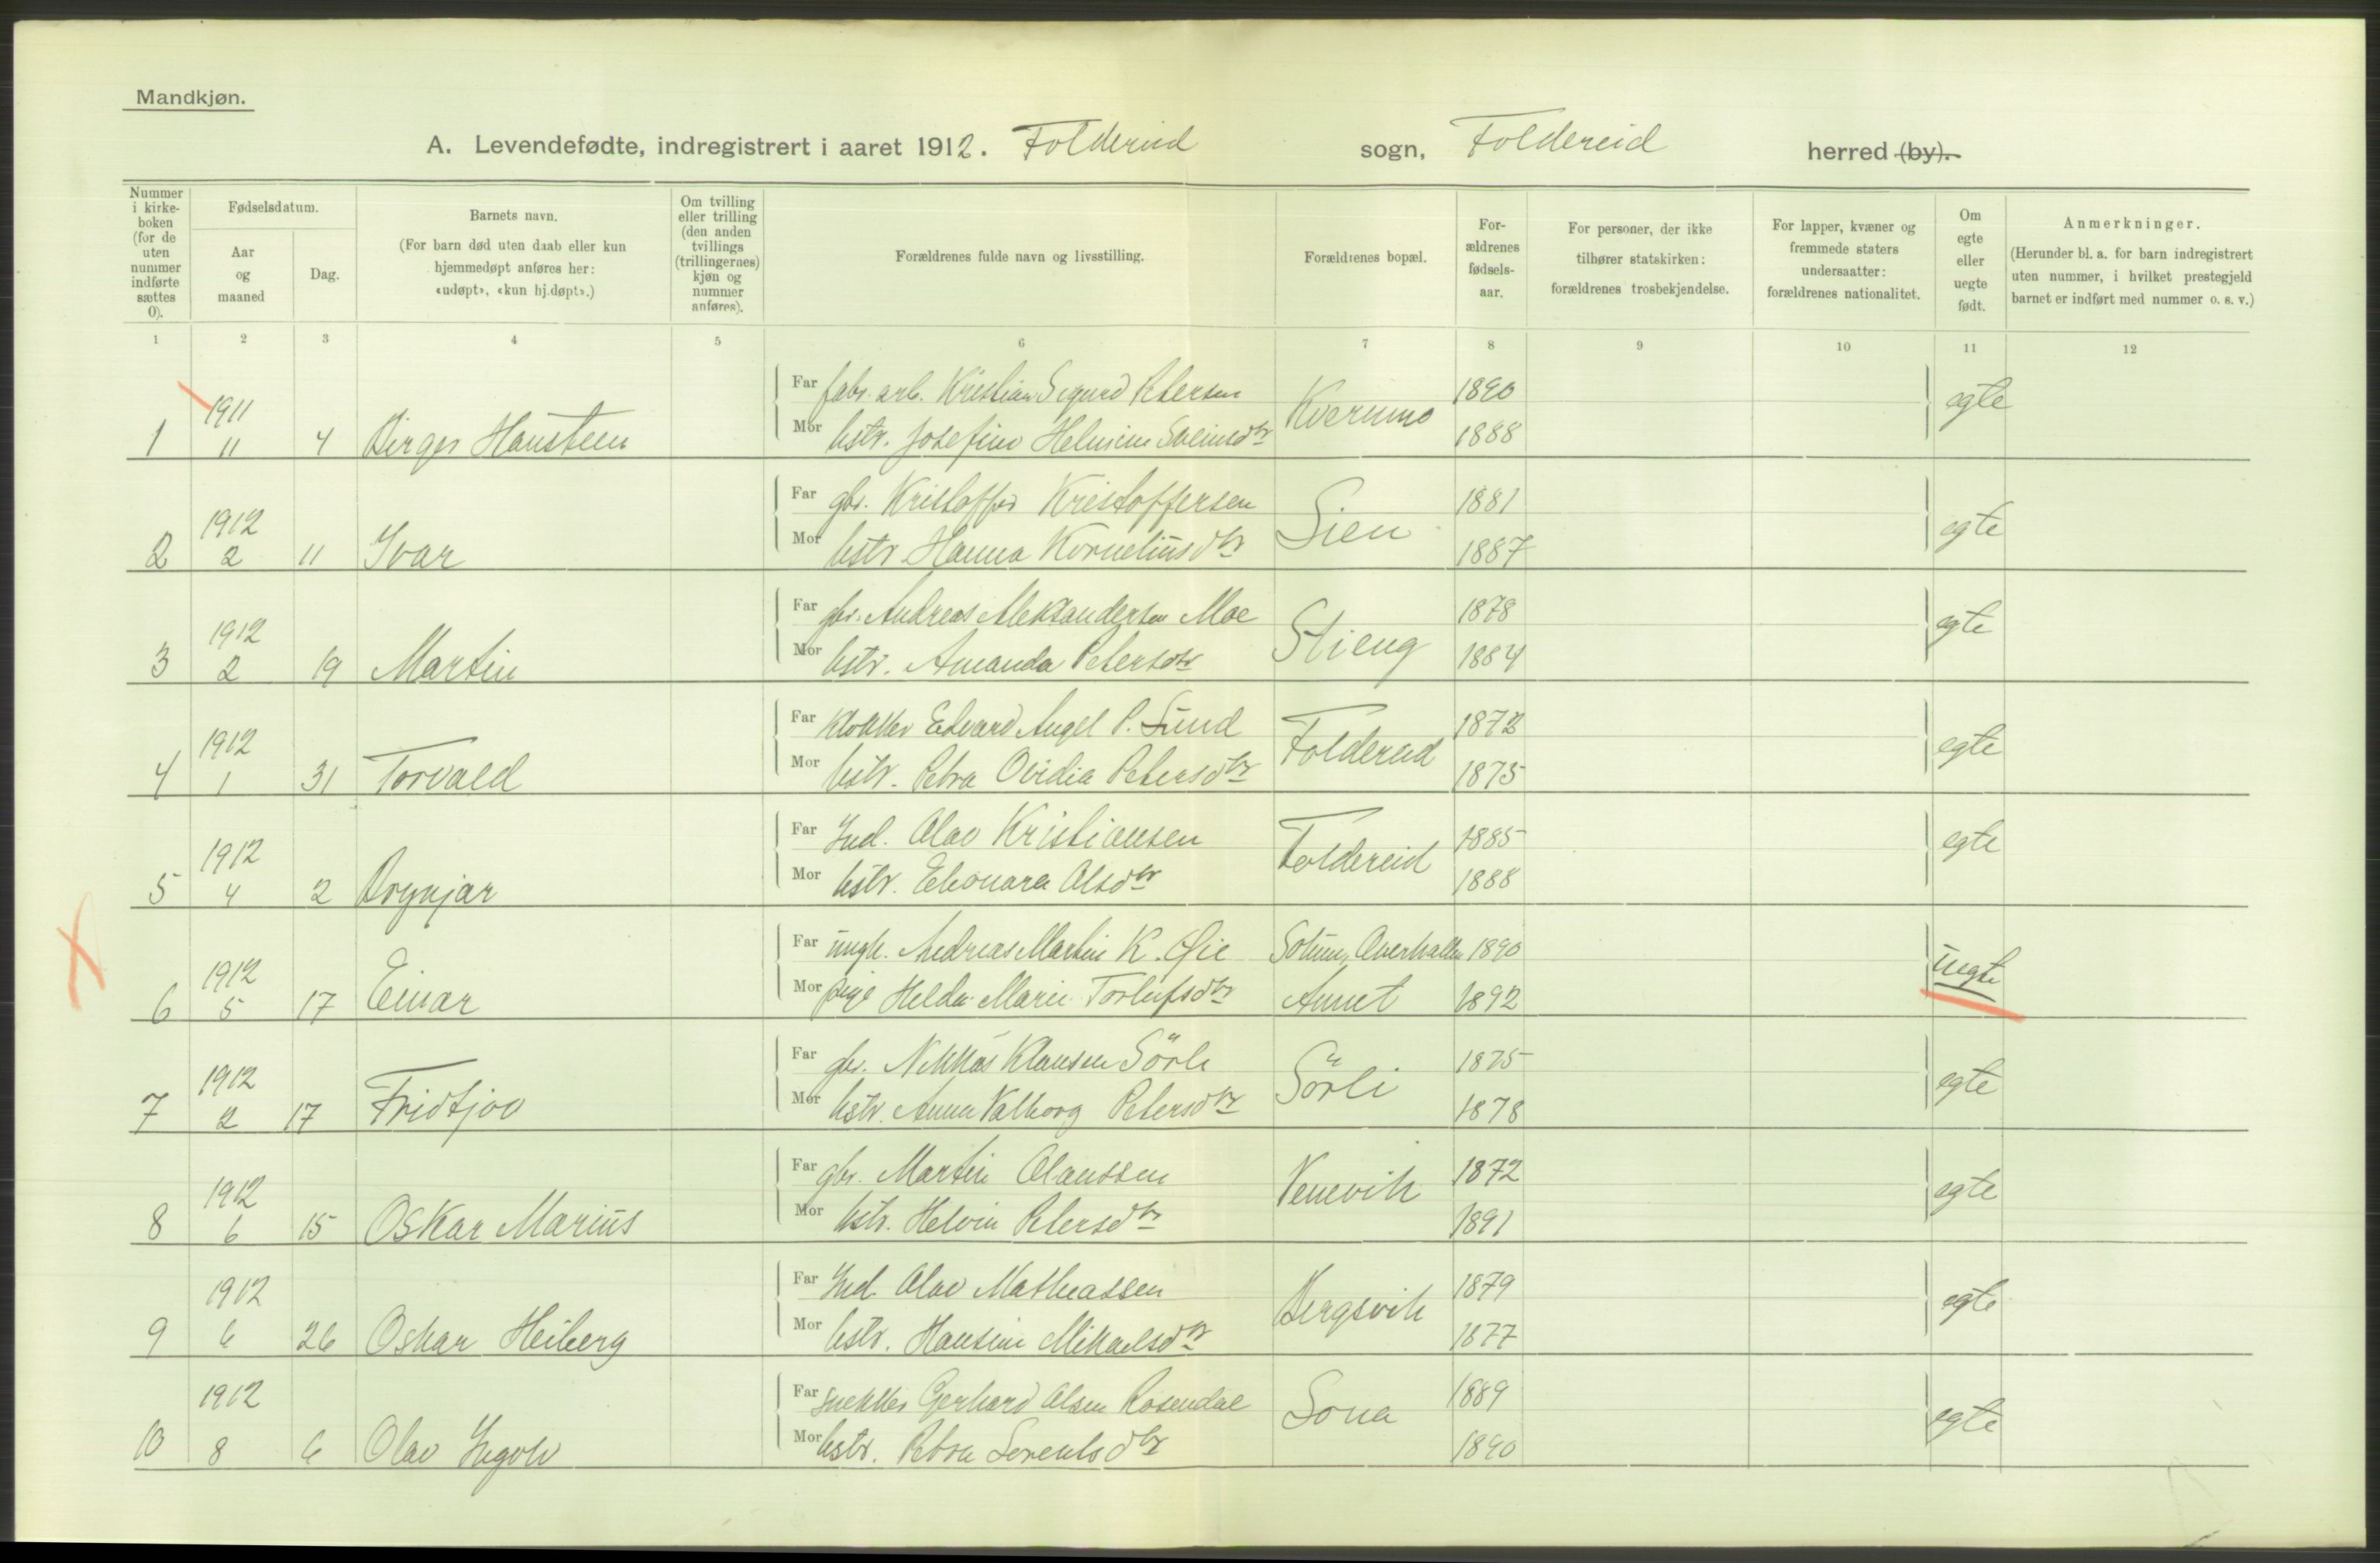 Mandkjøn.
A. Levendefødte, indregistrert i aaret 1912. Foldereid sogn, Foldereid herred (by).
Nummer i kirkeboken (for de uten nummer indførte sættes 0).
Fødselsdatum.
Aar og maaned
Dag.
Barnets navn.
(For barn død uten daab eller kun hjemmedøpt anføres her: «udøpt», «kun hj.døpt».)
Om tvilling eller trilling (den anden tvillings (trillingernes) kjøn og nummer anføres).
Forældrenes fulde navn og livsstilling.
Forældrenes bopæl.
Forældrenes fødselsaar.
For personer, der ikke tilhører statskirken: forældrenes trosbekjendelse.
For lapper, kvæner og fremmede staters undersaatter: forældrenes nationalitet.
Om egte eller uegte født.
Anmerkninger.
(Herunder bl. a. for barn indregistrert uten nummer, i hvilket prestegjeld barnet er indført med nummer o. s. v.)
1 2 3 4 5 6 7 8 9 10 11 12
1911
Far fabr. arb. Kristian Sigurd Petersen 1890
1 11 4 Birger Hansteen Mor hstr. Josefine Sveinsdtr Kvernmo 1888 egte
1912
Far gbr. Kristoffer Kristoffersen 1881
2 2 11 Ivar Mor hstr Hanna Korneliusdtr Lien 1887 egte
1912
Far gbr. Andreas Aleksandersen Moe 1878
3 2 19 Martin Mor hstr. Amanda Petersdtr Stieng 1884 egte
1912
Far Klokker Edvard Angel P. Lund 1872
4 1 31 Torvald Mor hstr. Petra Ovidia Petersdtr Foldereid 1875 egte
1912
Far Ind. Olav Kristiansen 1885
5 4 2 Brynjar Mor hstr. Eleonora Olsdtr Foldereid 1888 egte
1912
Far ungk. Andreas Martin K. Øie Solum, Overhallen 1890
6 5 17 Einar Mor pige Helda Marie Torleifsdtr Aunet 1892 uegte
1912
Far gbr. Niklas Klausen Sörli 1875
7 2 17 Fridtjov Mor hstr. Anna Valborg Petersdtr Sörli 1878 egte
1912
Far gbr. Martin Olaussen 1872
8 6 15 Oskar Marius Mor hstr. Helvin Petersdtr Venevik 1891 egte
1912
Far Ind. Olav Matheassen 1879
9 6 26 Oskar Heiberg Mor hstr. Hansine Mikaelsdtr Bergsvik 1877 egte
1912
Far snekker Gerhard Olsen Rosendal 1889
10 8 6 Olav Ingolv Mor hstr. Petra Lorentsdtr Lona 1890 egte